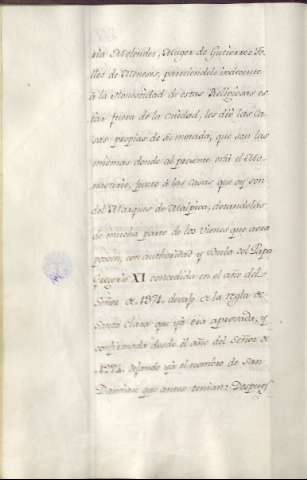 ria Melendez, Muger de Gutierrez Te-
llez de Meneses, pareciendole indecente
à la Honestidad de estas Religiosas es
tar fuera de la Ciudad, les diò las Ca
sas propias de su morada, que son las
mismas donde al presente està el Mo
nasterio, junto à las Casas que oy son
del Marques de Malpica, dotandolas
de mucha parte de los vienes que aora
poseen, con authoridad y Bula del Papa
Gregorio XI concedida en el año del
Señor de 1371 devajo de la regla de
Santa Clara que yà era aprovada, y
confirmada desde el año del Señor de
dejando yà el nombre de San
Damian que antes tenian: Despues